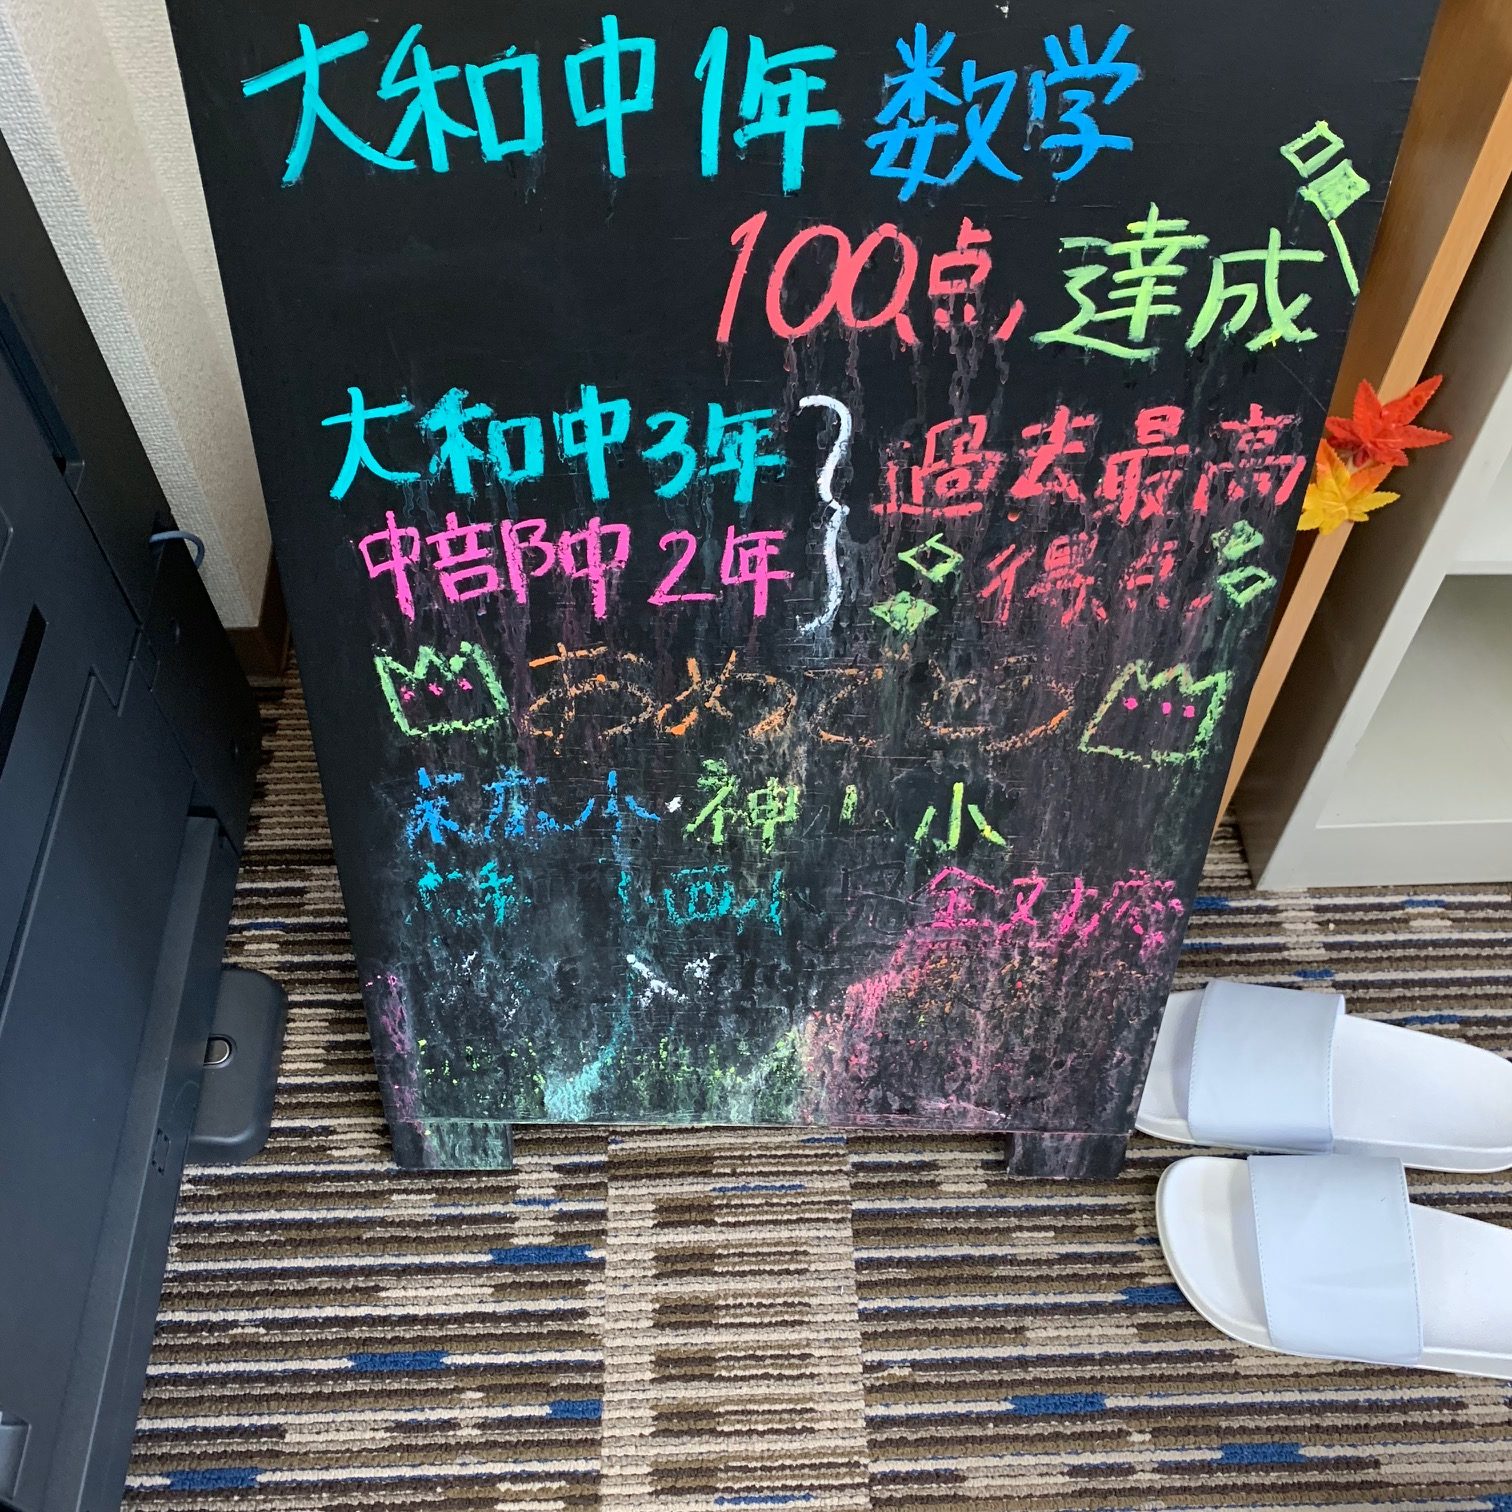 大和中1年 数学
100点 達成
大和中3年
中部中2年
過去最高
得点
おめでとう
小・神
小